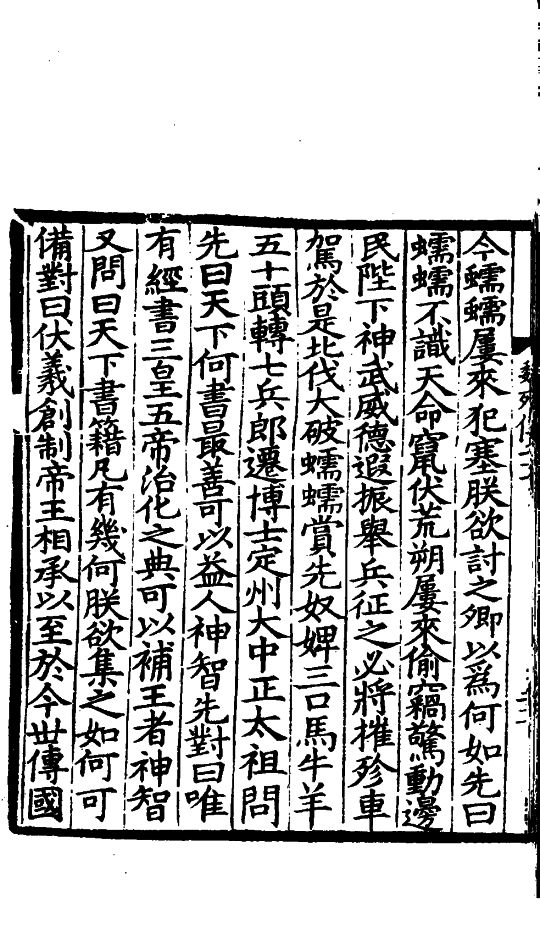 今蠕蠕屢來犯塞朕欲討之卿以爲何如先曰
蠕蠕不識天命竄伏荒朔屢來偷竊驚動邊
民陛下神武威德遐振舉兵征之必將摧殄車
駕於是北伐大破蠕蠕賞先奴婢三口馬牛羊
五十頭轉七兵郎遷博士定州大中正太祖問
先曰天下何書最善可以益人神智先對曰唯
有經書三皇五帝治化之典可以補王者神智
又問曰天下書籍凡有幾何朕欲集之如何可
備對曰伏羲創制帝王相承以至於今世傳國